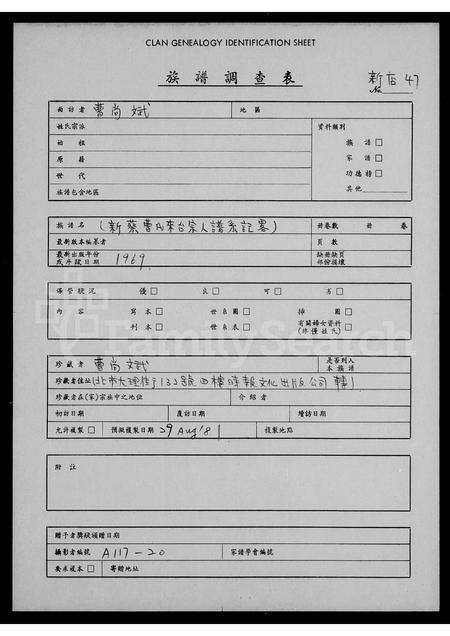 CLAN GENEALOGY IDENTIFICATION SHEET
族譜調查表
新店 47
No.
面訪者 曹尚斌 地區
姓氏宗派 資料類別
始祖 族譜□
原籍 家譜□
世代 功德榜□
族譜包含地區 其他
族譜名 (新蔡曹氏來台宗人譜系記畧) 冊卷數 冊 卷
最新版本編纂者 頁數
最新出版年份 1969 缺冊缺頁
或序跋日期 部份損壞
保管狀況 優□ 良□ 可□ 劣□
內容 寫本□ 世系圖□ 挿圖□
刊本□ 世系表□ 有關婦女資料□
(非僅姓氏)
珍藏者 曹尚斌 是否列入
本族譜
珍藏者住址 北市大理街132號四樓時報文化出版公司
珍藏者在(家)宗族中之地位 介紹者
初訪日期 覆訪日期 續訪日期
允許複製□ 預擬複製日期 29 Aug '81 複製地點
附註
贈予者獎狀頒贈日期
攝影者編號 A117-20 家譜學會編號
要求複本□ 寄贈地址
FamilySearch